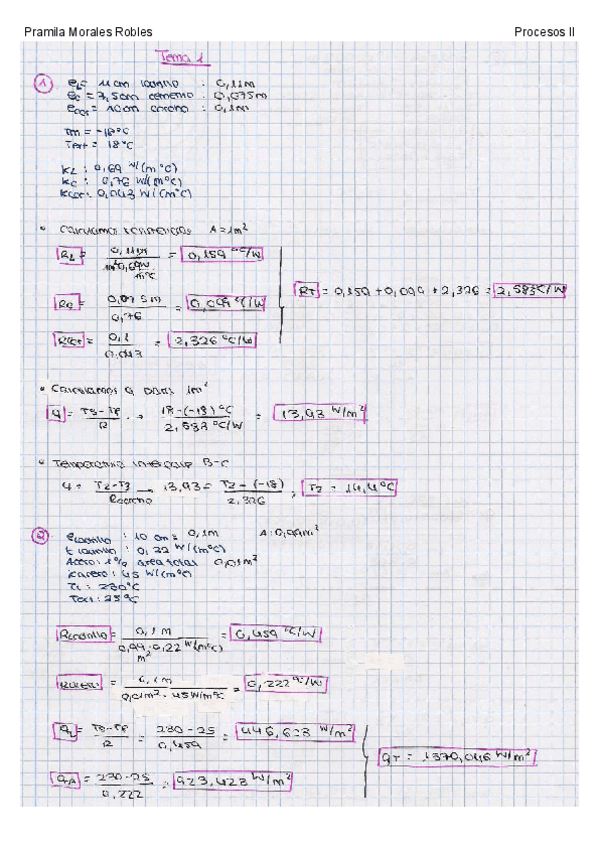 Pramila Morales Robles Procesos II
Tema 1
① eL = 11 cm ladrillo : 0,11m
eC = 7,5cm cemento : 0,075m
eCor = 10cm corcho : 0,1m
Tin = -18°C
Text = 18°C
kL : 0,69 W/(m°C)
kC : 0,76 W/(m°C)
kCor : 0,043 W/(m°C)
• Calculamos resistencias A = 1m²
RL = 0,11m / 1m² 0,69 W/m°C = 0,159 °C/W
RC = 0,075m / 0,76 = 0,099 °C/W
RT = 0,159 + 0,099 + 2,326 = 2,583°C/W
RCor = 0,1 / 0,043 = 2,326 °C/W
• Calculamos q para 1m²
q = T3-T0 / R → 18-(-18)°C / 2,583 °C/W = 13,93 W/m²
• Temperatura interfase B-C
q = T2-T3 / Rcorcho → 13,93 = T2-(-18) / 2,326 ; T2 = 14,4°C
② eladrillo : 10 cm = 0,1m A: 0,99m²
k ladrillo : 0,22 W/(m°C)
Acero : 1% area total 0,01m²
kacero : 45 W/(m°C)
Ti : 230°C
Text : 25°C
Rladrillo = 0,1 m / 0,99 · 0,22 W/(m°C) m² = 0,459 °C/W
Racero = 0,1 m / 0,01m² · 45W/m°C = 0,222 °C/W
qL = / R = 230-25 / 0,459 = 446,623 W/m²
qT = 1370,046 W/m²
qA = 230-25 / 0,222 = 923,423 W/m²